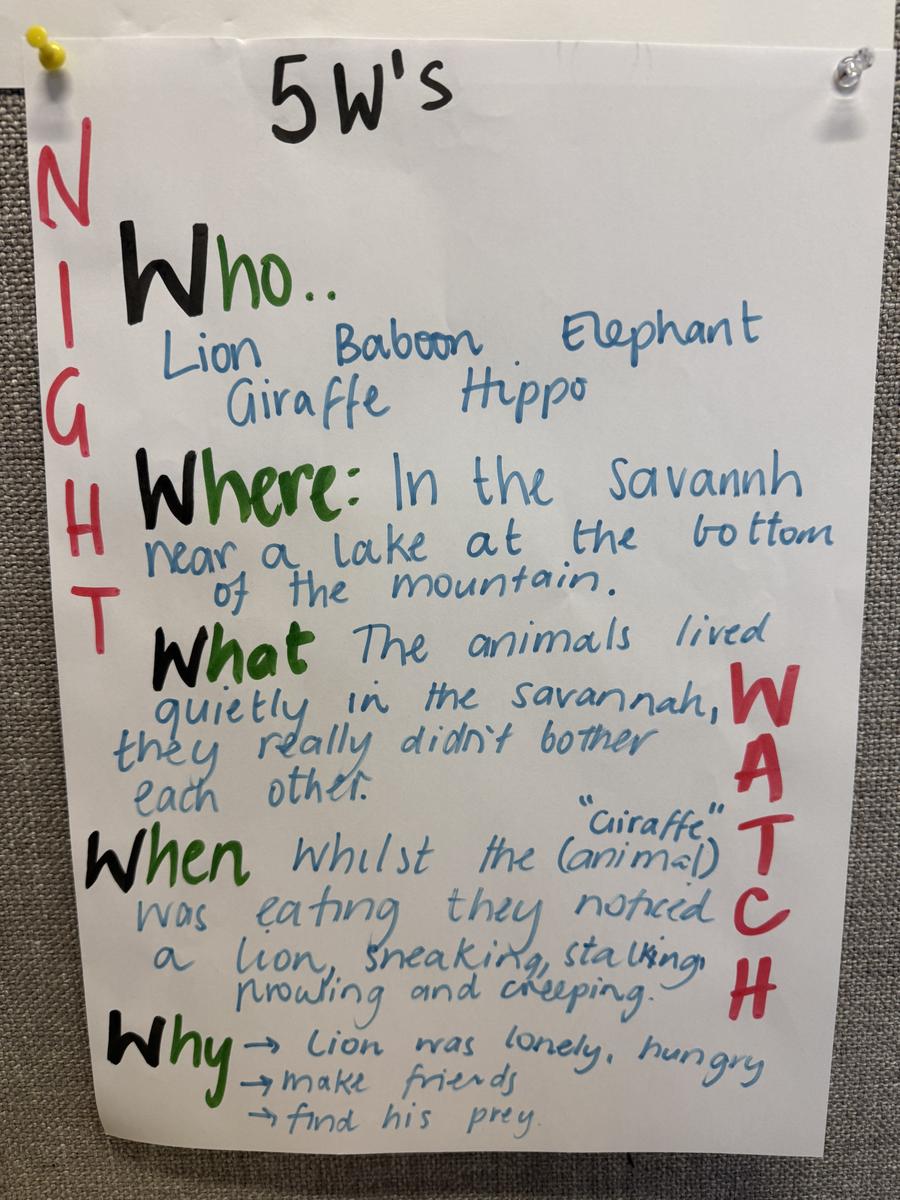 5 W's
NIGHT
Who..
Lion Baboon Elephant
Giraffe Hippo
Where: In the savannh
near a lake at the bottom
of the mountain.
What The animals lived
quietly in the savannah,
they really didn't bother
each other.
WATCH
"Giraffe"
When Whilst the (animal)
was eating they noticed
a lion, sneaking, stalking,
prowling and creeping.
Why → Lion was lonely, hungry
→ make friends
→ find his prey.